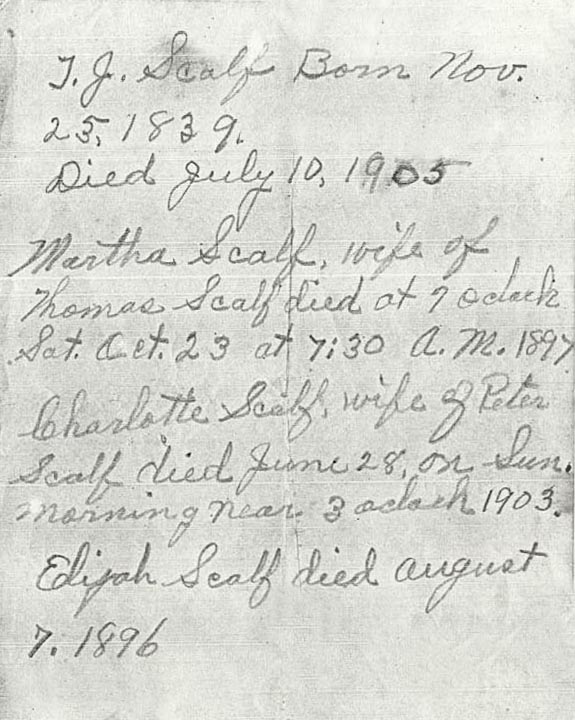 T. J. Scalf Born Nov.
25, 1839.
Died July 10, 1905
Martha Scalf, wife of
Thomas Scalf died at 7 oclock
Sat. Oct. 23 at 7:30 A. M. 1897
Charlotte Scalf, wife of Peter
Scalf died June 28, on Sun.
morning near 3 oclock 1903.
Elijah Scalf died august
7. 1896